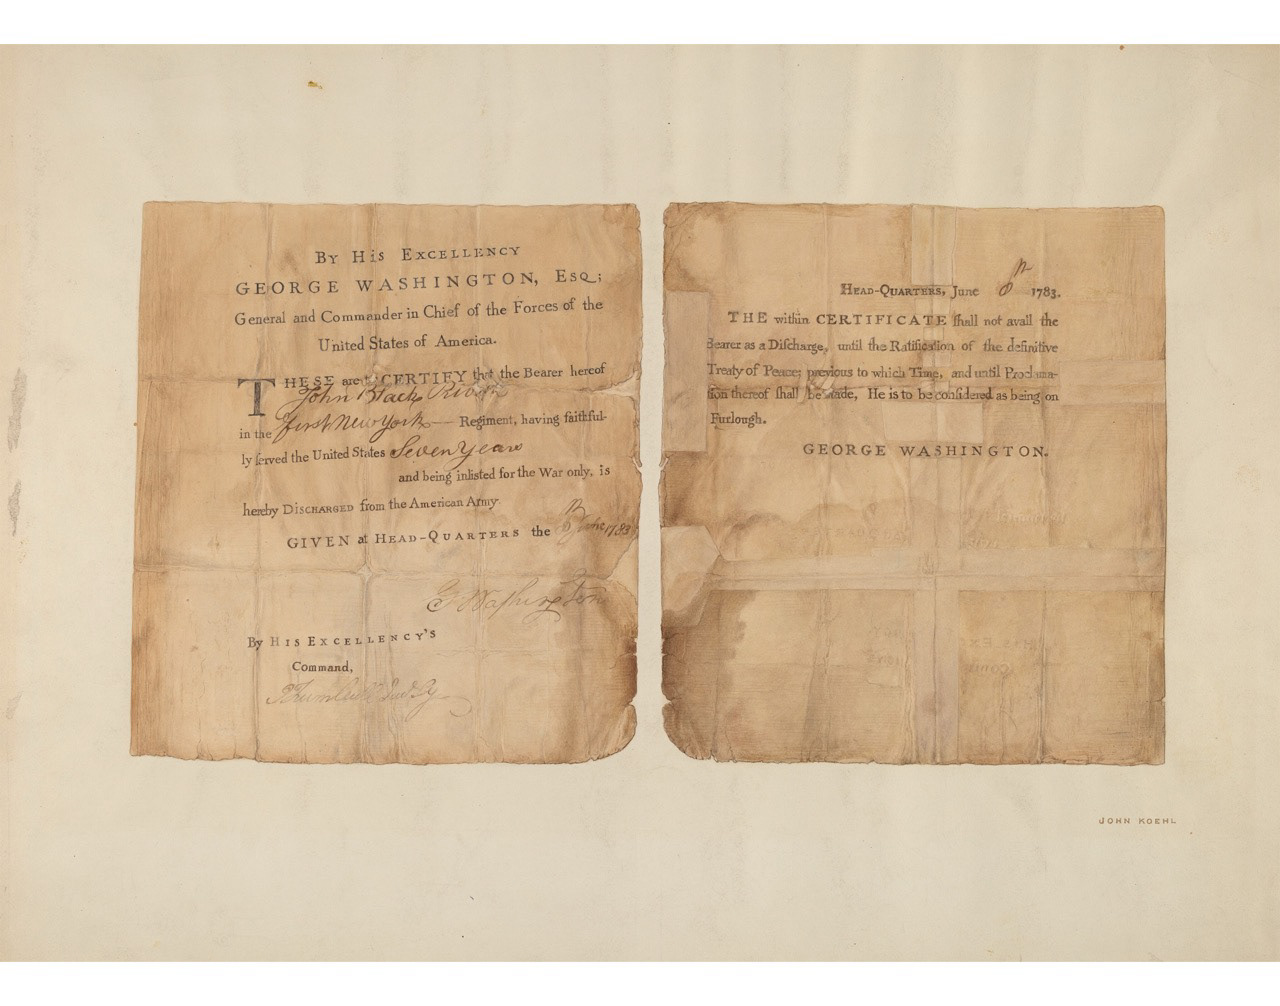 By His Excellency
GEORGE WASHINGTON, Esq;
General and Commander in Chief of the Forces of the
United States of America.
THESE are to CERTIFY that the Bearer hereof
John Black
in the first New York Regiment, having faithful-
ly served the United States Seven Years
and being inlisted for the War only, is
hereby Discharged from the American Army.
GIVEN at Head-Quarters the 8th June 1783
G Washington
By His Excellency's
Command,
Head-Quarters, June 8th 1783.
THE within CERTIFICATE shall not avail the
Bearer as a Discharge, until the Ratification of the definitive
Treaty of Peace; previous to which Time, and until Proclama-
tion thereof shall be made, He is to be considered as being on
Furlough.
GEORGE WASHINGTON.
JOHN KOEHL